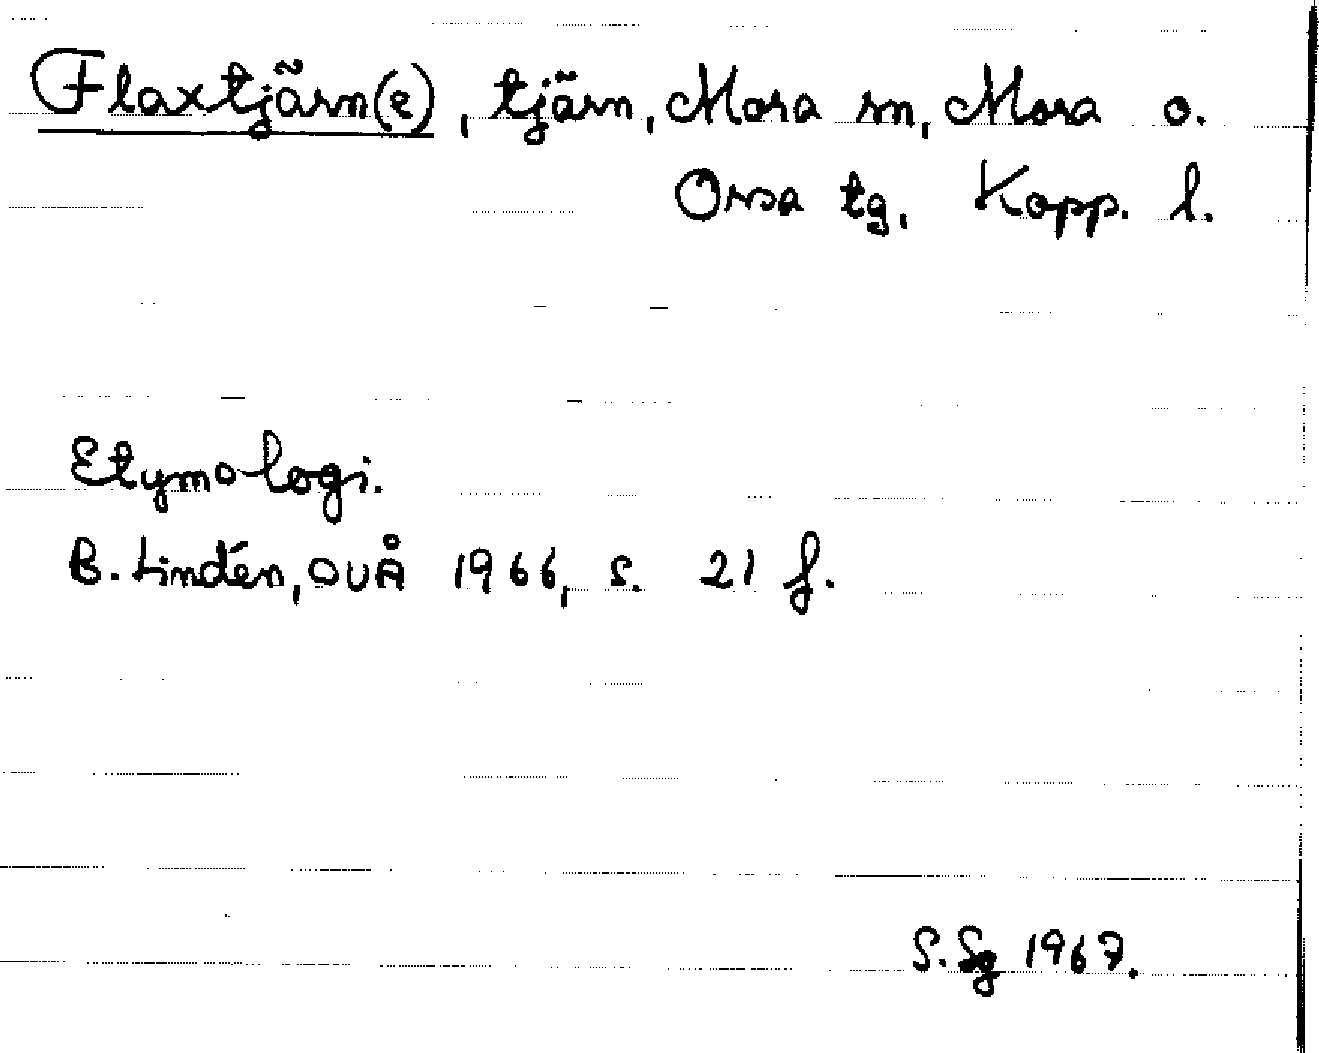 Flaxtjärn(e), tjärn, Mora sn, Mora o.
Orsa tg. Kopp. l.
Etymologi.
B. Lindén, OUÅ 1966, s. 21 f.
S. Sg 1967.